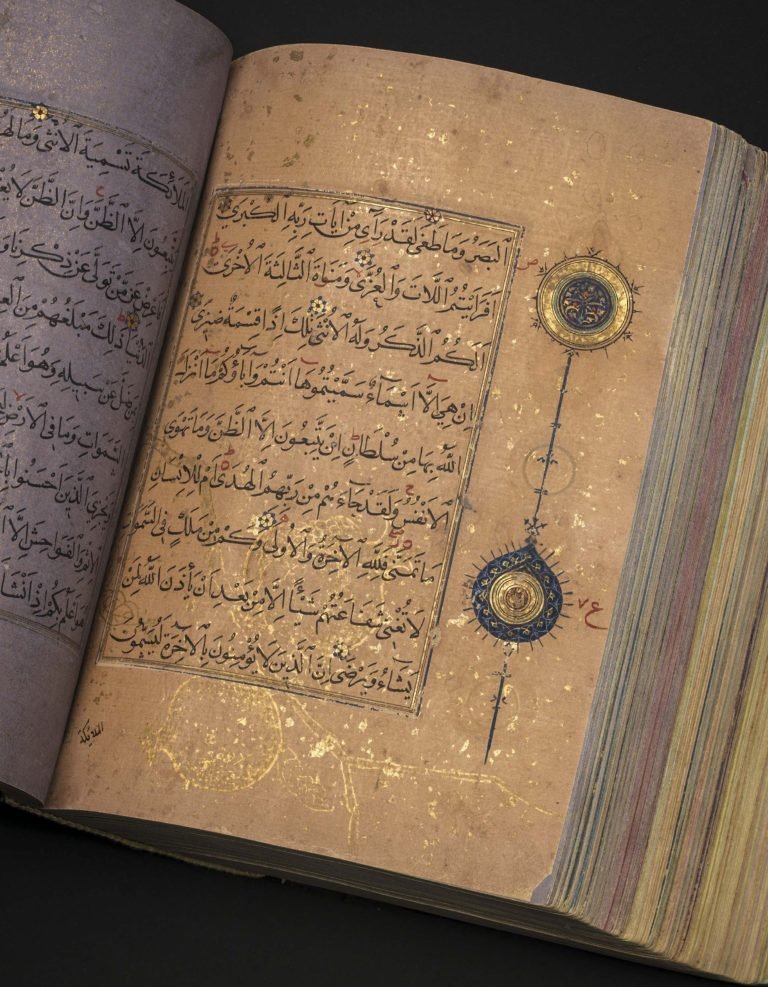 البصر وما طغى لقد رأى من آيات ربه الكبرى
أفرأيتم اللات والعزى ومناة الثالثة الأخرى
ألكم الذكر وله الأنثى تلك إذا قسمة ضيزى
إن هي إلا أسماء سميتموها أنتم وآباؤكم ما أنزل
الله بها من سلطان إن يتبعون إلا الظن وما تهوى
الأنفس ولقد جاءهم من ربهم الهدى أم للإنسان
ما تمنى فلله الآخرة والأولى وكم من ملك في السموات
لا تغني شفاعتهم شيئا إلا من بعد أن يأذن الله لمن
يشاء ويرضى إن الذين لا يؤمنون بالآخرة ليسمون
الملائكة
ع ٧
الملائكة تسمية الأنثى وما لهم
يتبعون إلا الظن وإن الظن لا
فأعرض عن من تولى عن ذكرنا و
الدنيا ذلك مبلغهم من
ضل عن سبيله وهو أعلم
السموات وما في الأرض
ويجزي الذين أحسنوا
الإثم والفواحش إلا
هو أعلم بكم إذ أنشا